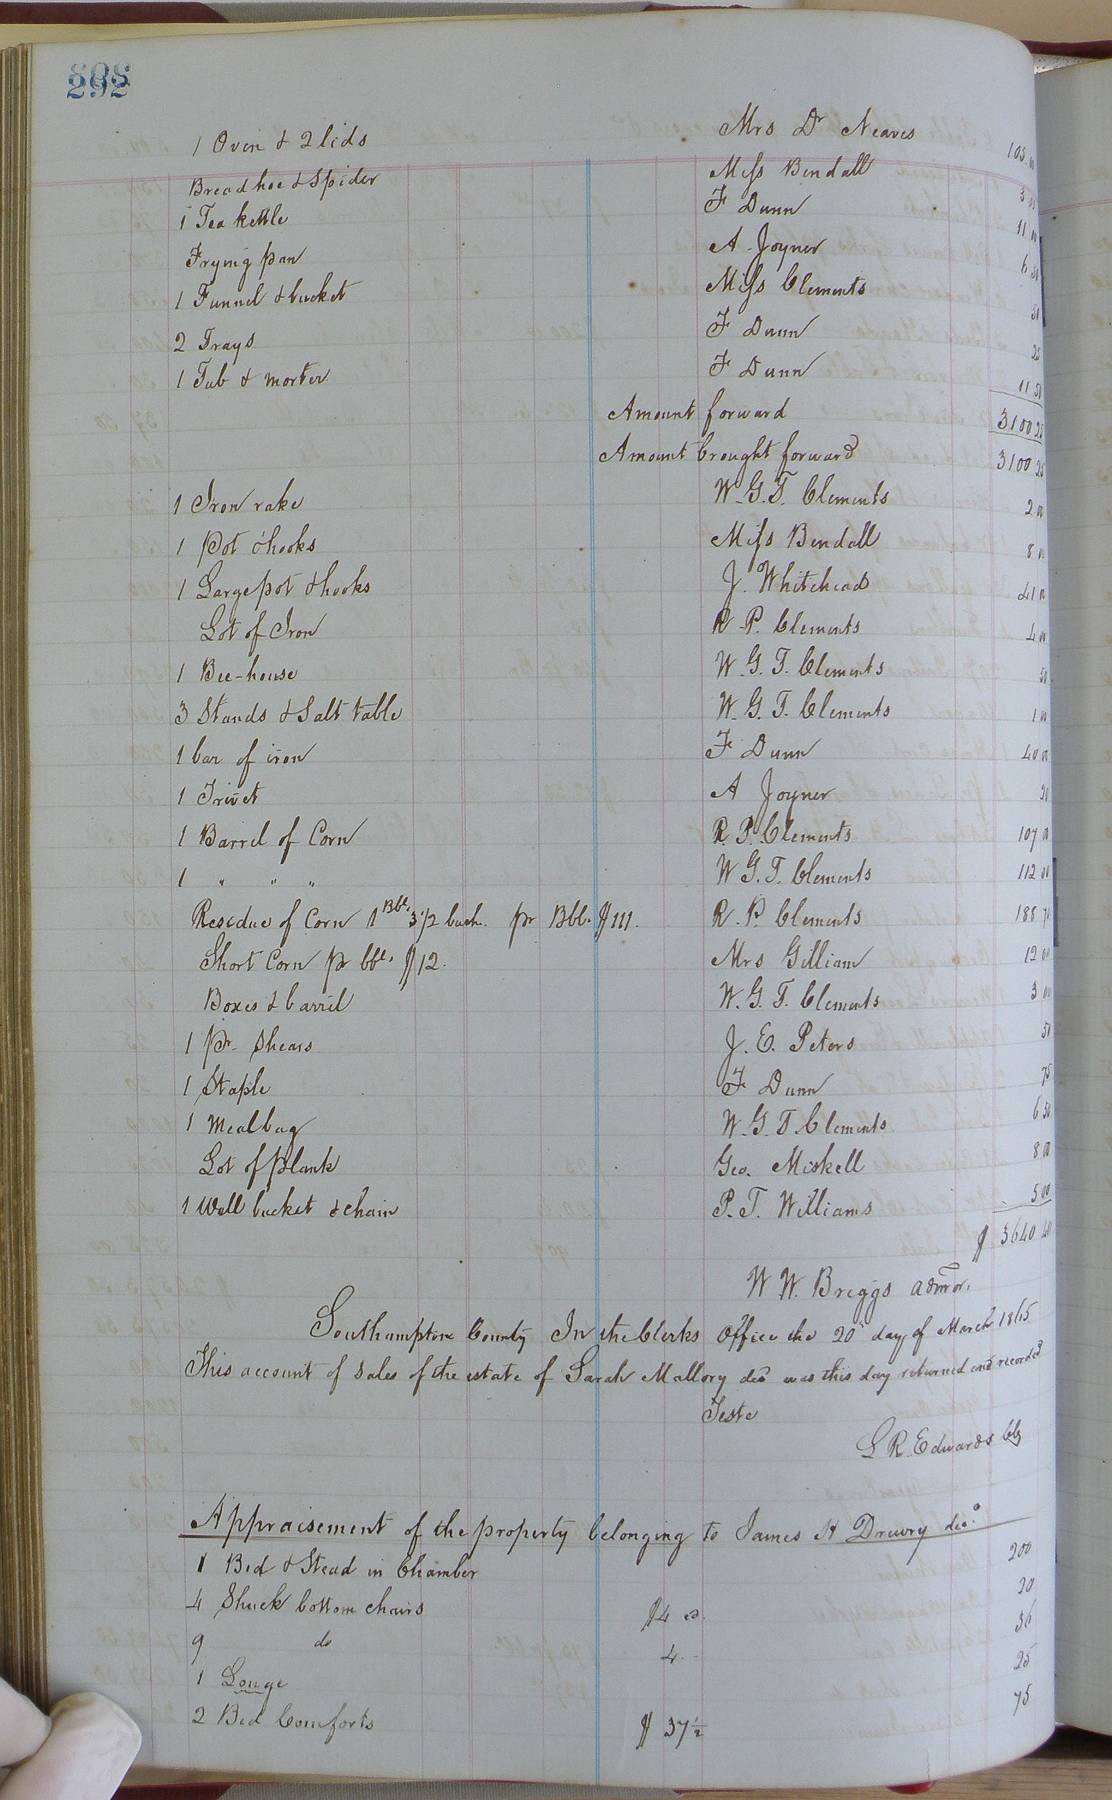 292
1 Oven & 2 lids Mrs Dr Neaves 105.00
Bread hoe & Spider Miss Bendall 3 00
1 Tea kettle F Dunn 11 00
Frying pan A. Joyner 6 50
1 Funnel & bucket Miss Clements 50
2 Trays F Dunn 25
1 Tub & morter F Dunn 11 50
Amount forward 3100 25
Amount brought forward 3100 25
1 Iron rake W. G. T. Clements 2 00
1 Pot & hooks Miss Bendall 8 00
1 Large pot & hooks J. Whitehead 41 00
Lot of Iron R. P. Clements 4 00
1 Bee-house W. G. T. Clements 50
3 Stands & Salt table W. G. T. Clements 1 00
1 bar of iron F Dunn 40 00
1 Trivet A Joyner
1 Barrel of Corn R. P. Clements 107 00
1 " " " W G. T. Clements 112 00
Residue of Corn 1 Bbl. 3 1/2 bush. pr Bbl. $111. R. P. Clements 188 70
Short Corn pr bbl. $12. Mrs Gilliam 12 00
Boxes & barril W. G. T. Clements 3 00
1 Pr. Shears J. E. Peters 50
1 Staple F Dunn 75
1 Mealbag W. G. T. Clements 6 50
Lot of Plank Geo. Miskell 8 00
1 Well bucket & chain P. T. Williams 5 00
$ 3640 40
W W. Briggs admor.
Southampton County In the Clerks Office the 20 day of March 1865
This account of sales of the estate of Sarah Mallory decd was this day returned and recorded
Teste
L R. Edwards Clk
Appraisement of the property belonging to James H Drewry dec.
1 Bed & Stead in Chamber 200
4 Shuck bottom chairs $4
9 do 4 36
1 Louge 25
2 Bed Comforts $ 37 1/2 75